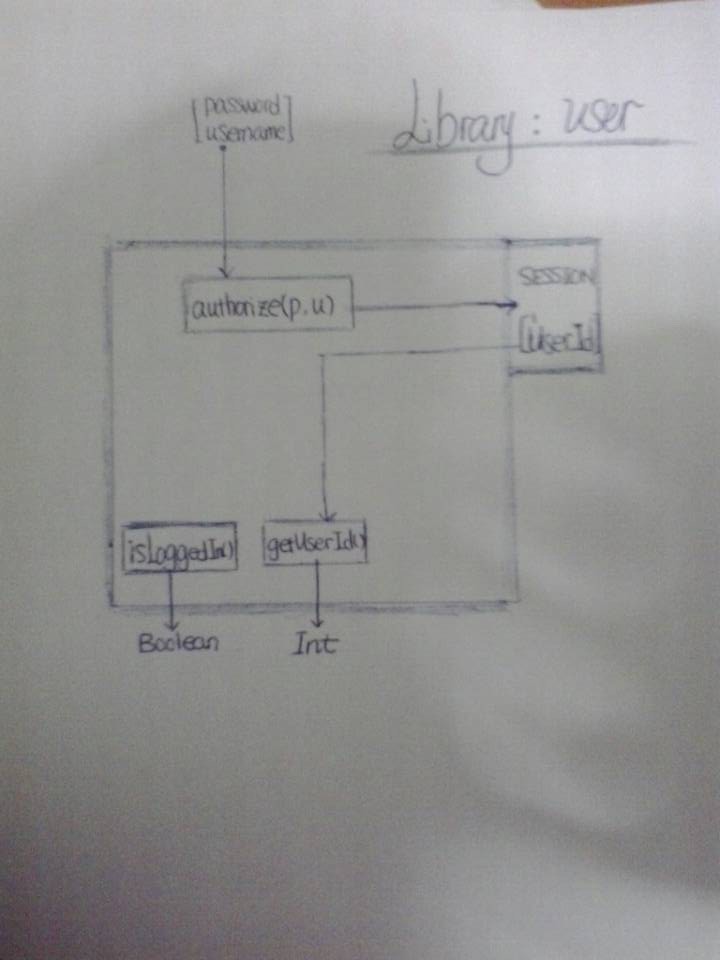 Library: user
[password
username]
authorize(p,u)
SESSION
[UserId]
isLoggedIn()
getUserId()
Boolean
Int